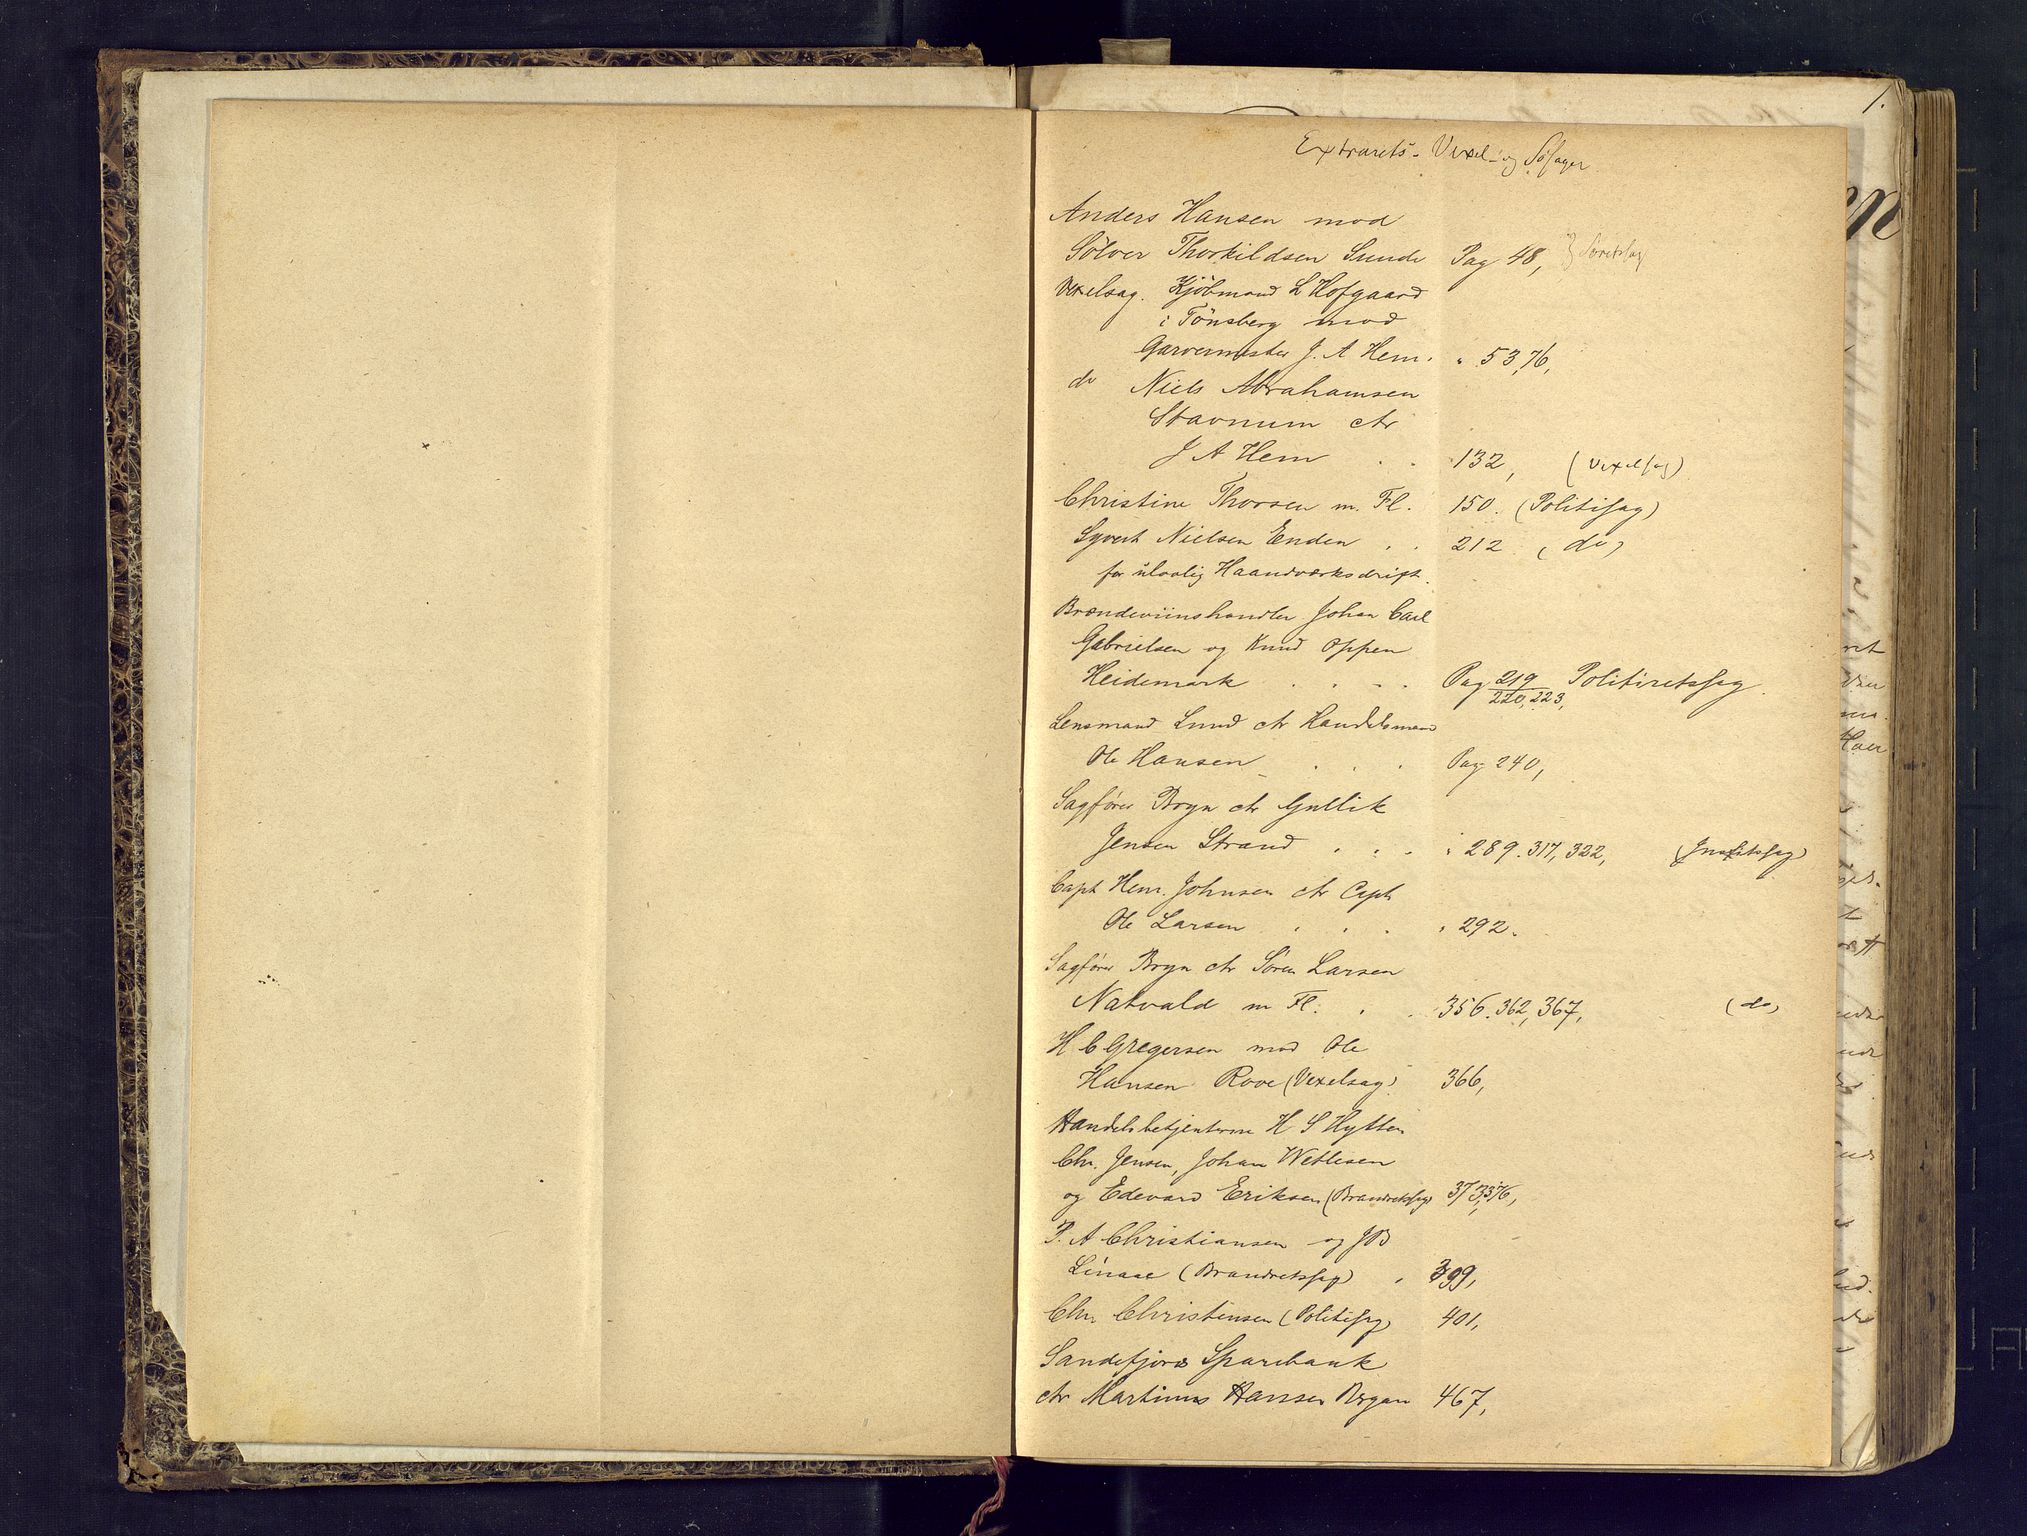 1.
Extrarets- Vexel- og Søsager
Anders Hansen mod
Sölver Thorkildsen Sunde Pag 48, } Søretssag
Vexelsag. Kjöbmand L Hofgaard
i Tönsberg mod
Garvermester J. A Hem. " 53,76,
do Niels Abrahamsen
Stavnum ctr
J A Hem . . 132, (Vexelsag)
Christine Thorsen m. Fl. 150. (Politisag)
Syvert Nielsen Enden . . 212. (do)
for ulovlig Haandværksdrift.
Brændeviinshandler Johan Carl
Gabrielsen og Knud Oppen
Heidemark . . . . Pag 219 Politiretssag.
220, 223,
Lensmand Lund ctr Handelsmand
Ole Hansen . . . Pag 240,
Sagfører Bryn ctr Gullik
Jensen Strand . . . " 289. 317, 322, (Justitssag)
Capt Hem. Johnsen ctr Capt
Ole Larsen . . . " 292.
Sagfører Bryn ctr Sören Larsen
Natvald m Fl. . . 356. 362, 367, (do)
H C Gregersen mod Ole
Hansen Rove (Vexelsag) 366,
Handelsbetjenterne H S Hytten
Chr. Jensen, Johan Wetlesen
og Edevard Eriksen (Brandretssag) 373, 376,
P. A Christiansen og JB
Linaae (Brandretssag) . 399,
Chr Christensen (Politisag) 401,
Sandefjords Sparebank
ctr Martinus Hansen Bergan 467,